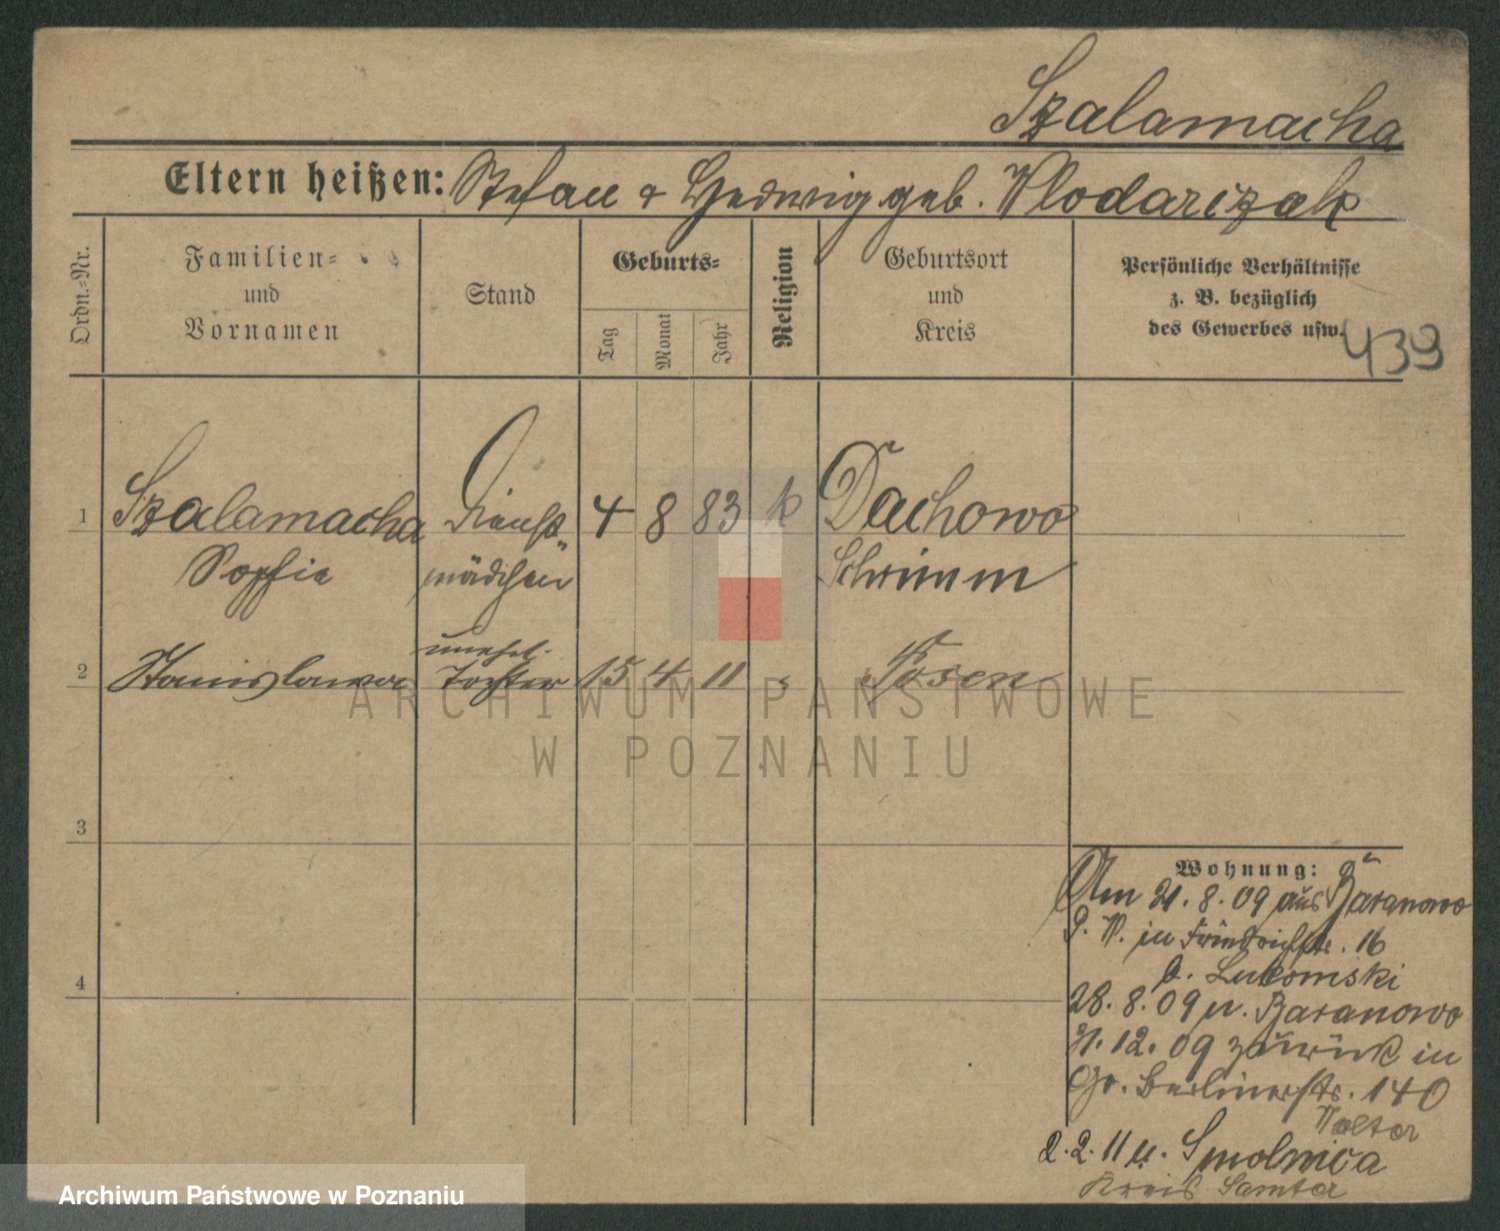 Szalamacha
Eltern heißen: Stefan & Hedwig geb. Wlodarczak
Ordn.-Nr.
Familien-
und
Vornamen
Stand
Geburts-
Tag
Monat
Jahr
Religion
Geburtsort
und
Kreis
Persönliche Verhältnisse
z. B. bezüglich
des Gewerbes usw.
439
1 Szalamacha Dienst- 4 8 83 k Dachowo
Sophie mädchen Schrimm
unehel.
2 Stanislawa Tochter 15 4 11 " Posen
3
4
Wohnung:
Am 21.8.09 aus Baranowo
P. W. in Friedrichstr. 16
b. Lukomski
28.8.09 n. Baranowo
31.12.09 zurück in
Gr. Berlinerstr. 140
2.2.11 n. Smolnica
Kreis Samter
ARCHIWUM PAŃSTWOWE
W POZNANIU
Archiwum Państwowe w Poznaniu